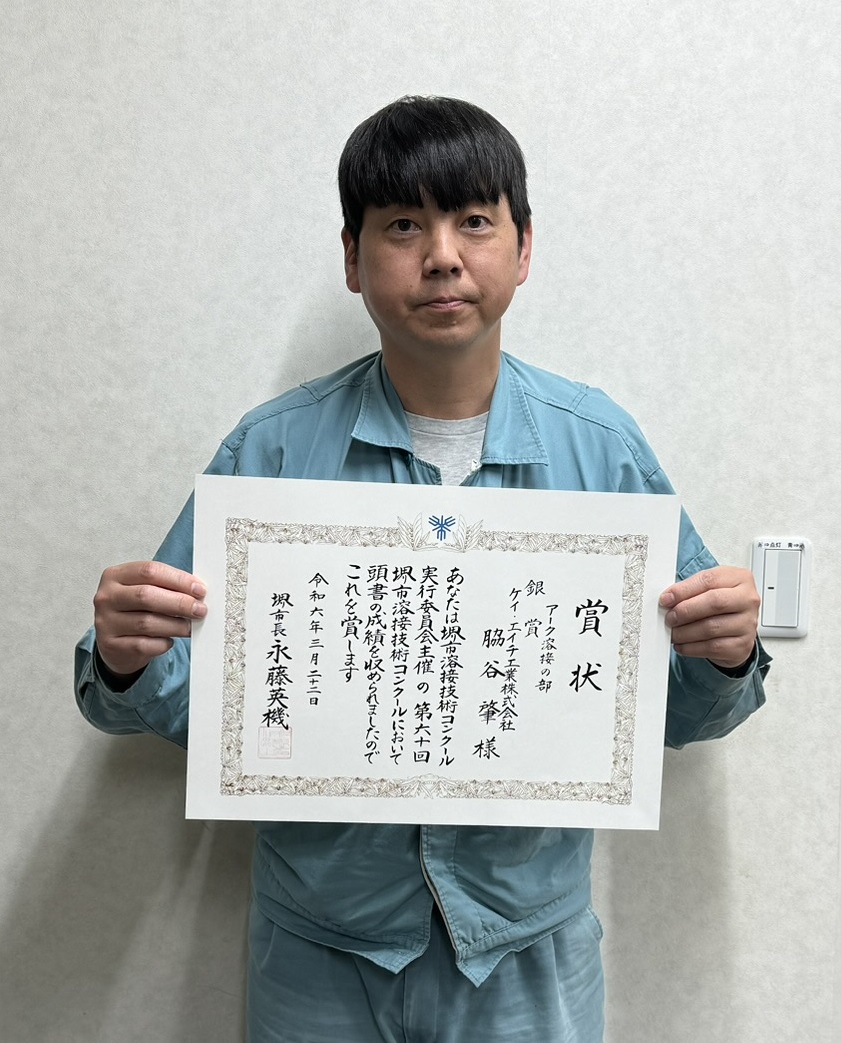 賞状
アーク溶接の部
銀賞
ケイ・エイチ工業株式会社
脇谷肇様
あなたは堺市溶接技術コンクール
実行委員会主催の第六十回
堺市溶接技術コンクールにおいて
頭書の成績を収められましたので
これを賞します
令和六年三月二十二日
堺市長永藤英機